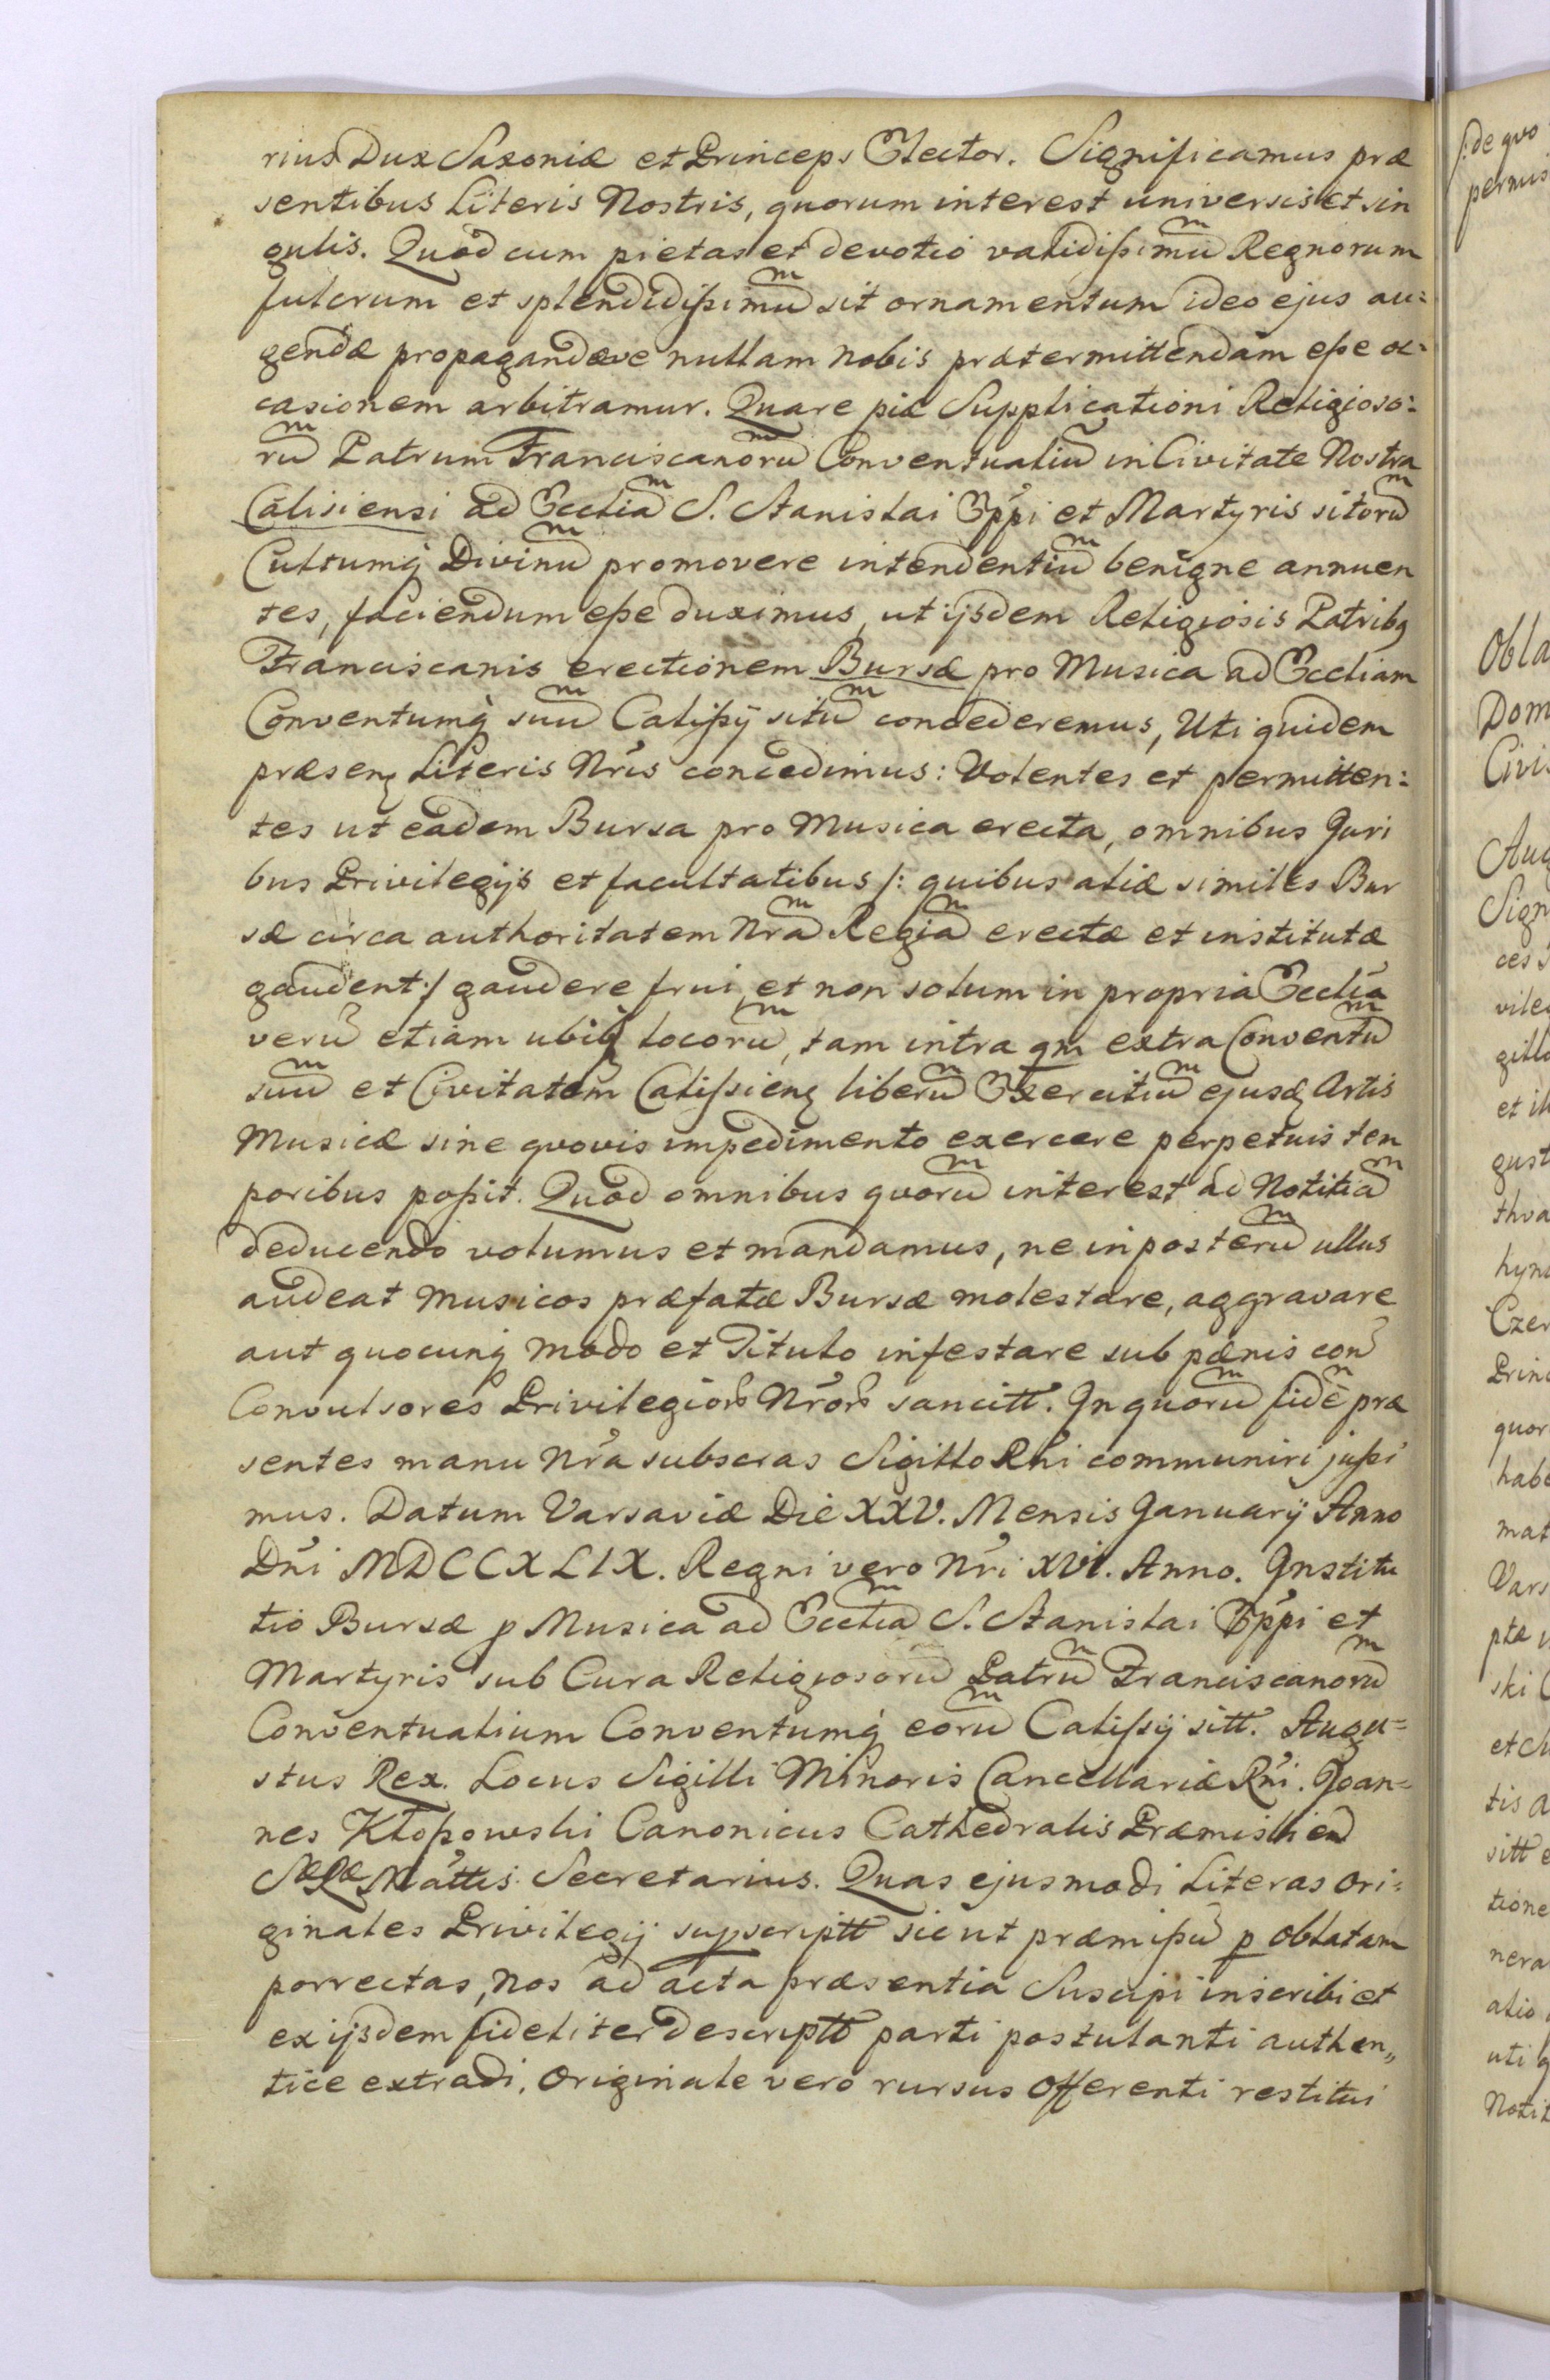 rius Dux Saxoniæ et Princeps Elector. Significamus præ
sentibus Literis Nostris, quorum interest universis et sin
gulis. Quod cum pietas et devotio validißimũ Regnorum
fulcrum et splendidißimũ sit ornamentum ideo ejus au:
gendæ propagandæve nullam nobis prætermittendam eße oc:
casionem arbitramur. Quare piæ Supplicationi Religioso:
rũ Patrum Franciscanorũ Conventualiũ in Civitate Nostra
Calisiensi ad Eccliã S. Stanislai Eppi et Martyris sitorũ
Cultumq̨ Divinũ promovere intendentiũ benigne annuen
tes, faciendum eße duximus, ut ijsdem Religiosis Patribq
Franciscanis erectionem Bursæ pro Musica ad Eccliam
Conventumq̨ suũ Calißij sitũ concederemus, Uti quidem
præsenq Literis Nris concedimus: Volentes et permitten:
tes ut eadem Bursa pro Musica erecta, omnibus Juri
bus Privilegijs et facultatibus /: quibus aliæ similes Bur
sæ circa authoritatem Nrã Regiã erectæ et institutæ
gaudent :/ gaudere frui, et non solum in propria Ecclia
verũ etiam ubiq̨ locorũ, tam intra qm extra Conventũ
suũ et Civitatem Calißienq liberũ Exercitiũ ejusdq Artis
Musicæ sine qvovis impedimento exercere perpetuis tem
poribus poßit. Quod omnibus qvorũ interest ad Notitiã
deducendo volumus et mandamus, ne in posterũ ullus
audeat Musicos præfatæ Bursæ molestare, aggravare
aut quocunq̨ modo et Titulo infestare sub pænis con
Convulsores Privilegior Nror sancitt. In quorũ fidẽ præ
sentes manu Nra subscras Sigillo Rni communiri jußi
mus. Datum Varsaviæ Die XXV. Mensis Januarij Anno
Dni MDCCXLIX. Regni vero Nri XVI. Anno. Institu
tio Bursæ p Musica ad Eccliã S. Stanislai Eppi et
Martyris sub Cura Religiosorũ Patrũ Franciscanorũ
Conventualium Conventumq̨ eorũ Calißij sitt. Augu=
stus Rex. Locus Sigilli Minoris Cancellariæ Rni. Joan=
nes Kłoßowski Canonicus Cathedralis Præmislien
SæRæ Mattis Secretarius. Quas ejusmodi Literas ori:
ginales Privilegij supscriptt sicut præmißũ p Oblatam
porrectas, Nos ad acta præsentia Suscipi inscribi et
ex ijsdem fideliter descriptt parti postulanti authen„
tice extradi, Originale vero rursus Offerenti restitui
/:de qvo
permis
Obla
Dom
Civi
Aug
Sign
ces
vileg
gillo
et il
gust
thva
hyn
Czer
Princ
quor
habe
mat
Vars
ptæ
ski
et
tis a
sitt e
tione
nera
alio
uti q
Notit